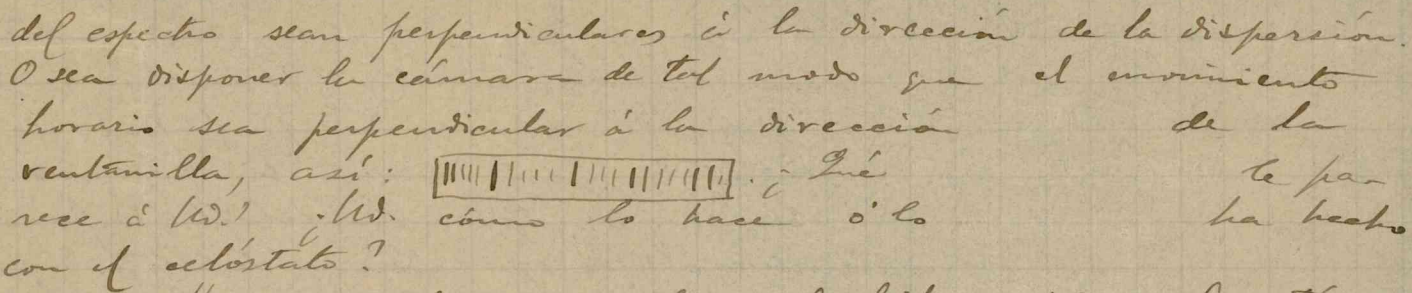 del espectro sean perpendiculares á la dirección de la dispersión.
O sea disponer la cámara de tal modo que el movimiento
horario sea perpendicular á la dirección de la
ventanilla, así: . ¿Qué le pa-
rece á Ud.? ¿Ud. cómo lo hace ó lo ha hecho
con el celóstato?